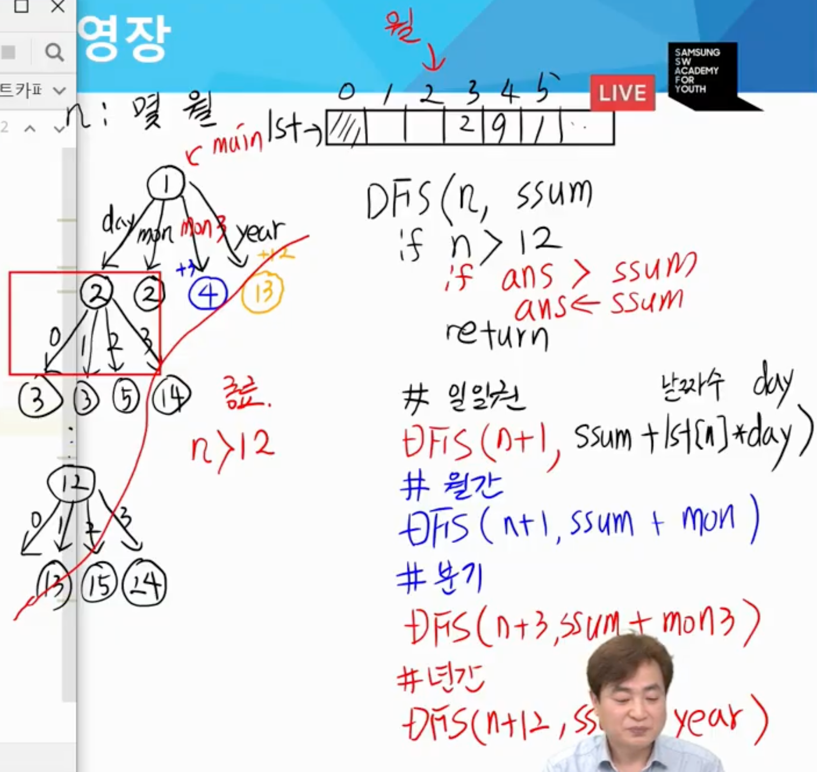 영장
SAMSUNG
SW
ACADEMY
FOR
YOUTH
LIVE
트카피
2
월
n: 몇 월
0 1 2 3 4 5
lst→ 2 9 1 ..
main
1
day mon mon3 year
+3 +12
2 2 4 13
0 1 2 3
3 3 5 14
종료.
n>12
:
12
0 1 2 3
13 15 24
DFS(n, ssum
if n > 12
if ans > ssum
ans ← ssum
return
# 일일권
날짜수 day
DFS(n+1, ssum + lst[n]*day)
# 월간
DFS(n+1, ssum + mon)
# 분기
DFS(n+3, ssum + mon3)
# 년간
DFS(n+12, ss year)